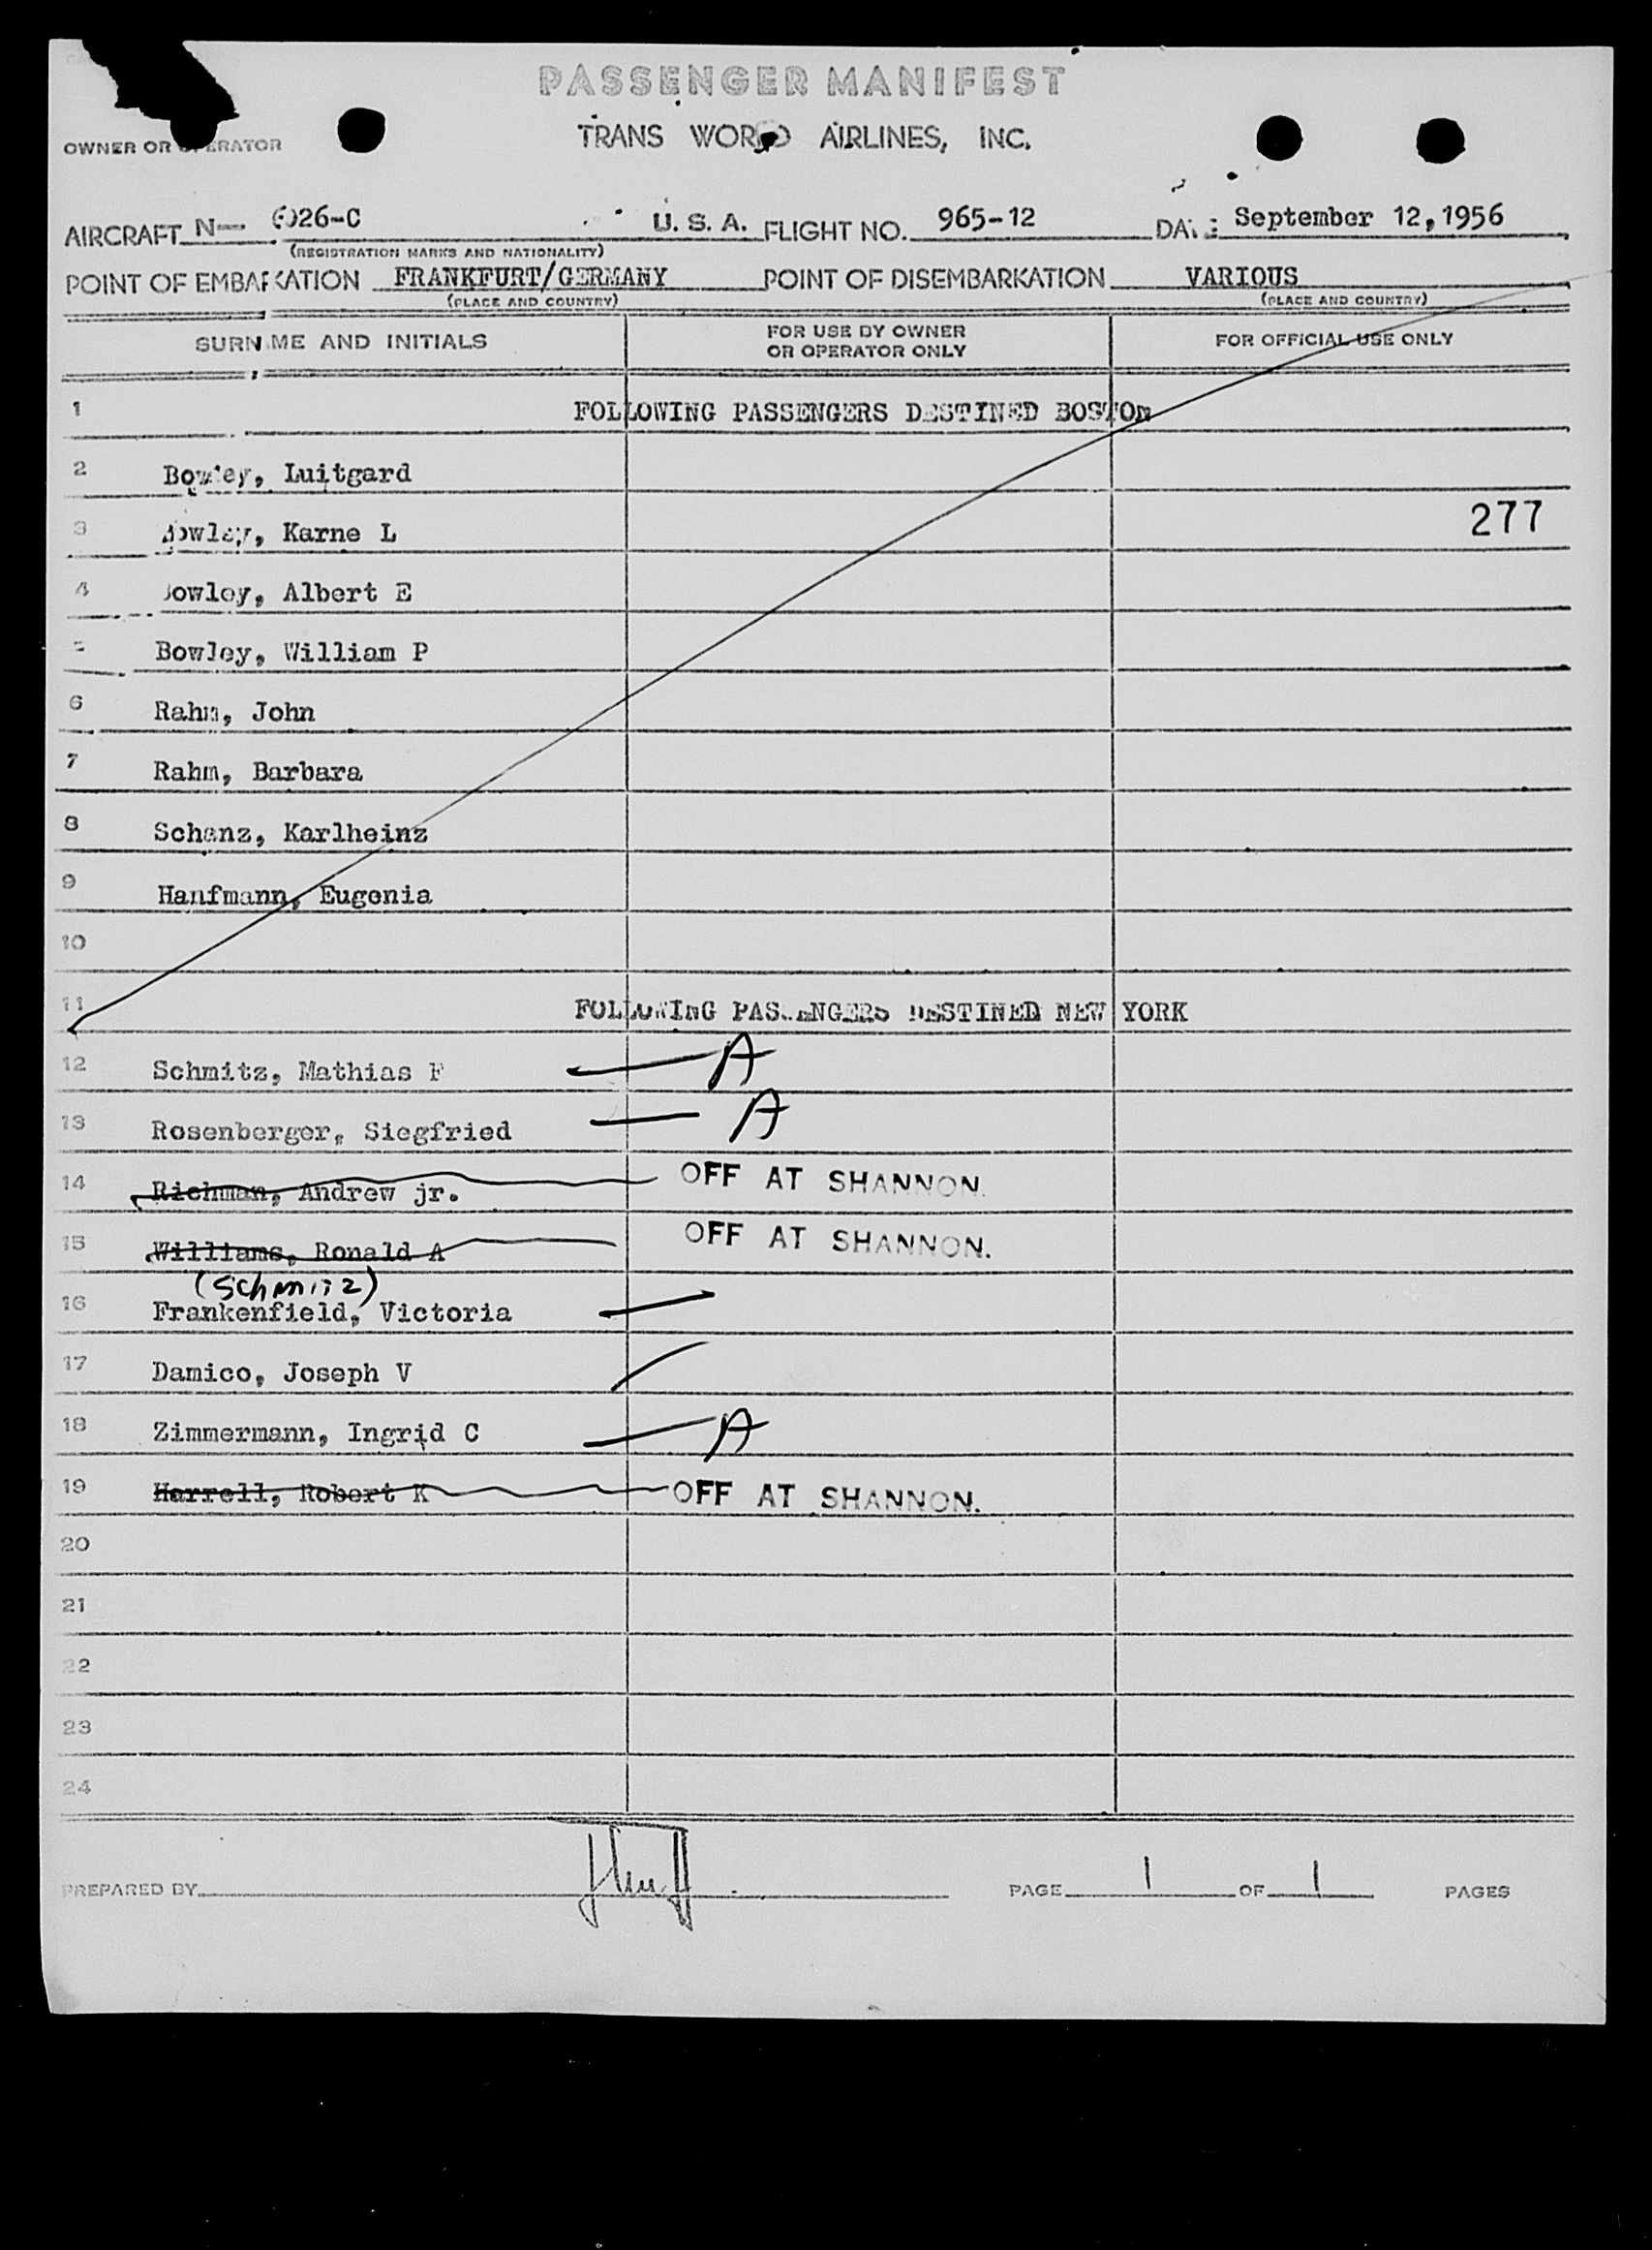 PASSENGER MANIFEST
TRANS WORLD AIRLINES, INC.
OWNER OR OPERATOR
AIRCRAFT N— 6026-C U. S. A. FLIGHT NO. 965-12 DATE September 12, 1956
(REGISTRATION MARKS AND NATIONALITY)
POINT OF EMBARKATION FRANKFURT/GERMANY POINT OF DISEMBARKATION VARIOUS
(PLACE AND COUNTRY) (PLACE AND COUNTRY)
SURNAME AND INITIALS FOR USE BY OWNER OR OPERATOR ONLY FOR OFFICIAL USE ONLY
1 FOLLOWING PASSENGERS DESTINED BOSTON
2 Bowley, Luitgard
3 Bowley, Karne L 277
4 Bowley, Albert E
5 Bowley, William P
6 Rahm, John
7 Rahm, Barbara
8 Schanz, Karlheinz
9 Hanfmann, Eugenia
10
11 FOLLOWING PASSENGERS DESTINED NEW YORK
12 Schmitz, Mathias F A
13 Rosenberger, Siegfried A
14 Richman, Andrew jr. OFF AT SHANNON.
15 Williams, Ronald A OFF AT SHANNON.
(Schmitz)
16 Frankenfield, Victoria
17 Damico, Joseph V
18 Zimmermann, Ingrid C A
19 Harrell, Robert K OFF AT SHANNON.
20
21
22
23
24
PREPARED BY PAGE 1 OF 1 PAGES